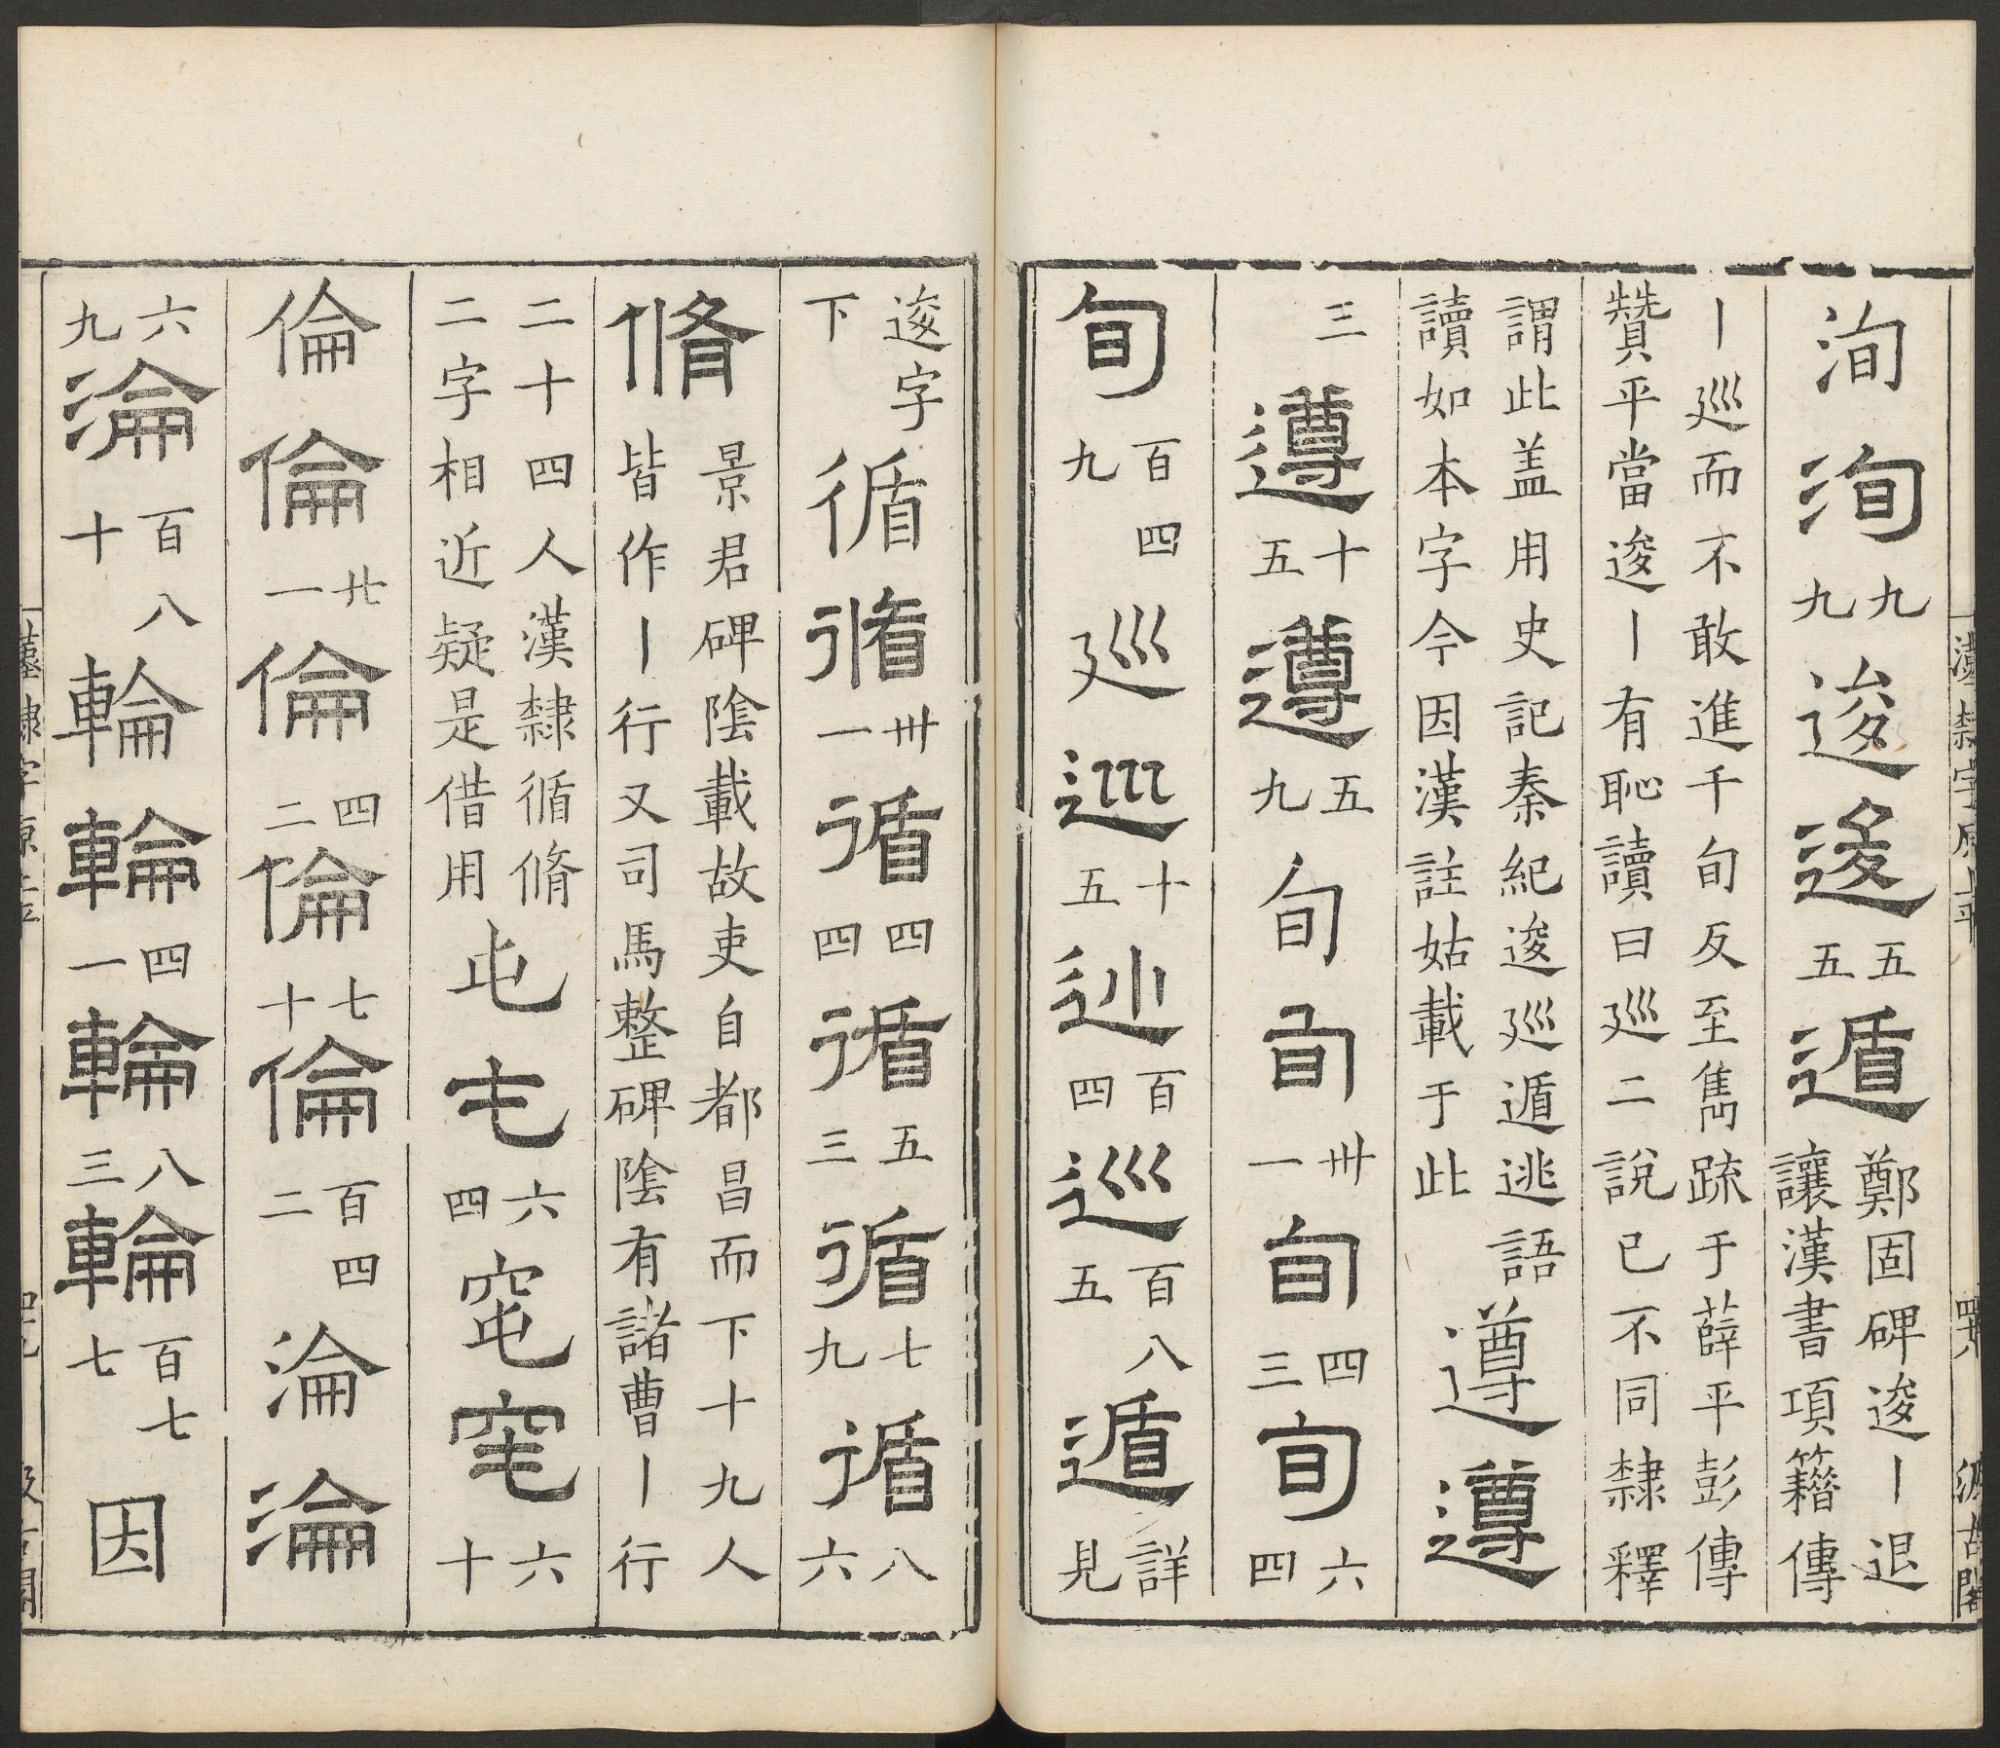 洵洵九九逡逡五五遁鄭固碑逡丨退讓漢書項籍傳
丨廵而不敢進千旬反至雋踈于薛平彭傳贊平當逡丨有恥讀曰廵二說已不同隸釋
謂此盖用史記秦紀逡廵遁逃語讀如本字今因漢註姑載于此遵遵
三遵十五遵五九旬旬卅一旬四三旬六四
旬百四九廵廵十五廵百四廵百八五遁詳見
漢隸字原上平 四八 汲古閣
逡字下循循卅一循四四循五三循七九循八六
脩景君碑陰載故吏自都昌而下十九人皆作丨行又司馬整碑陰有諸曹丨行
二十四人漢隸循脩二字相近疑是借用屯屯六四窀窀六十
倫倫廿一倫四二倫七十倫百四二淪淪
六九淪百八十輪輪四一輪八三輪百七七因
漢隸字原上平 四九 汲古閣